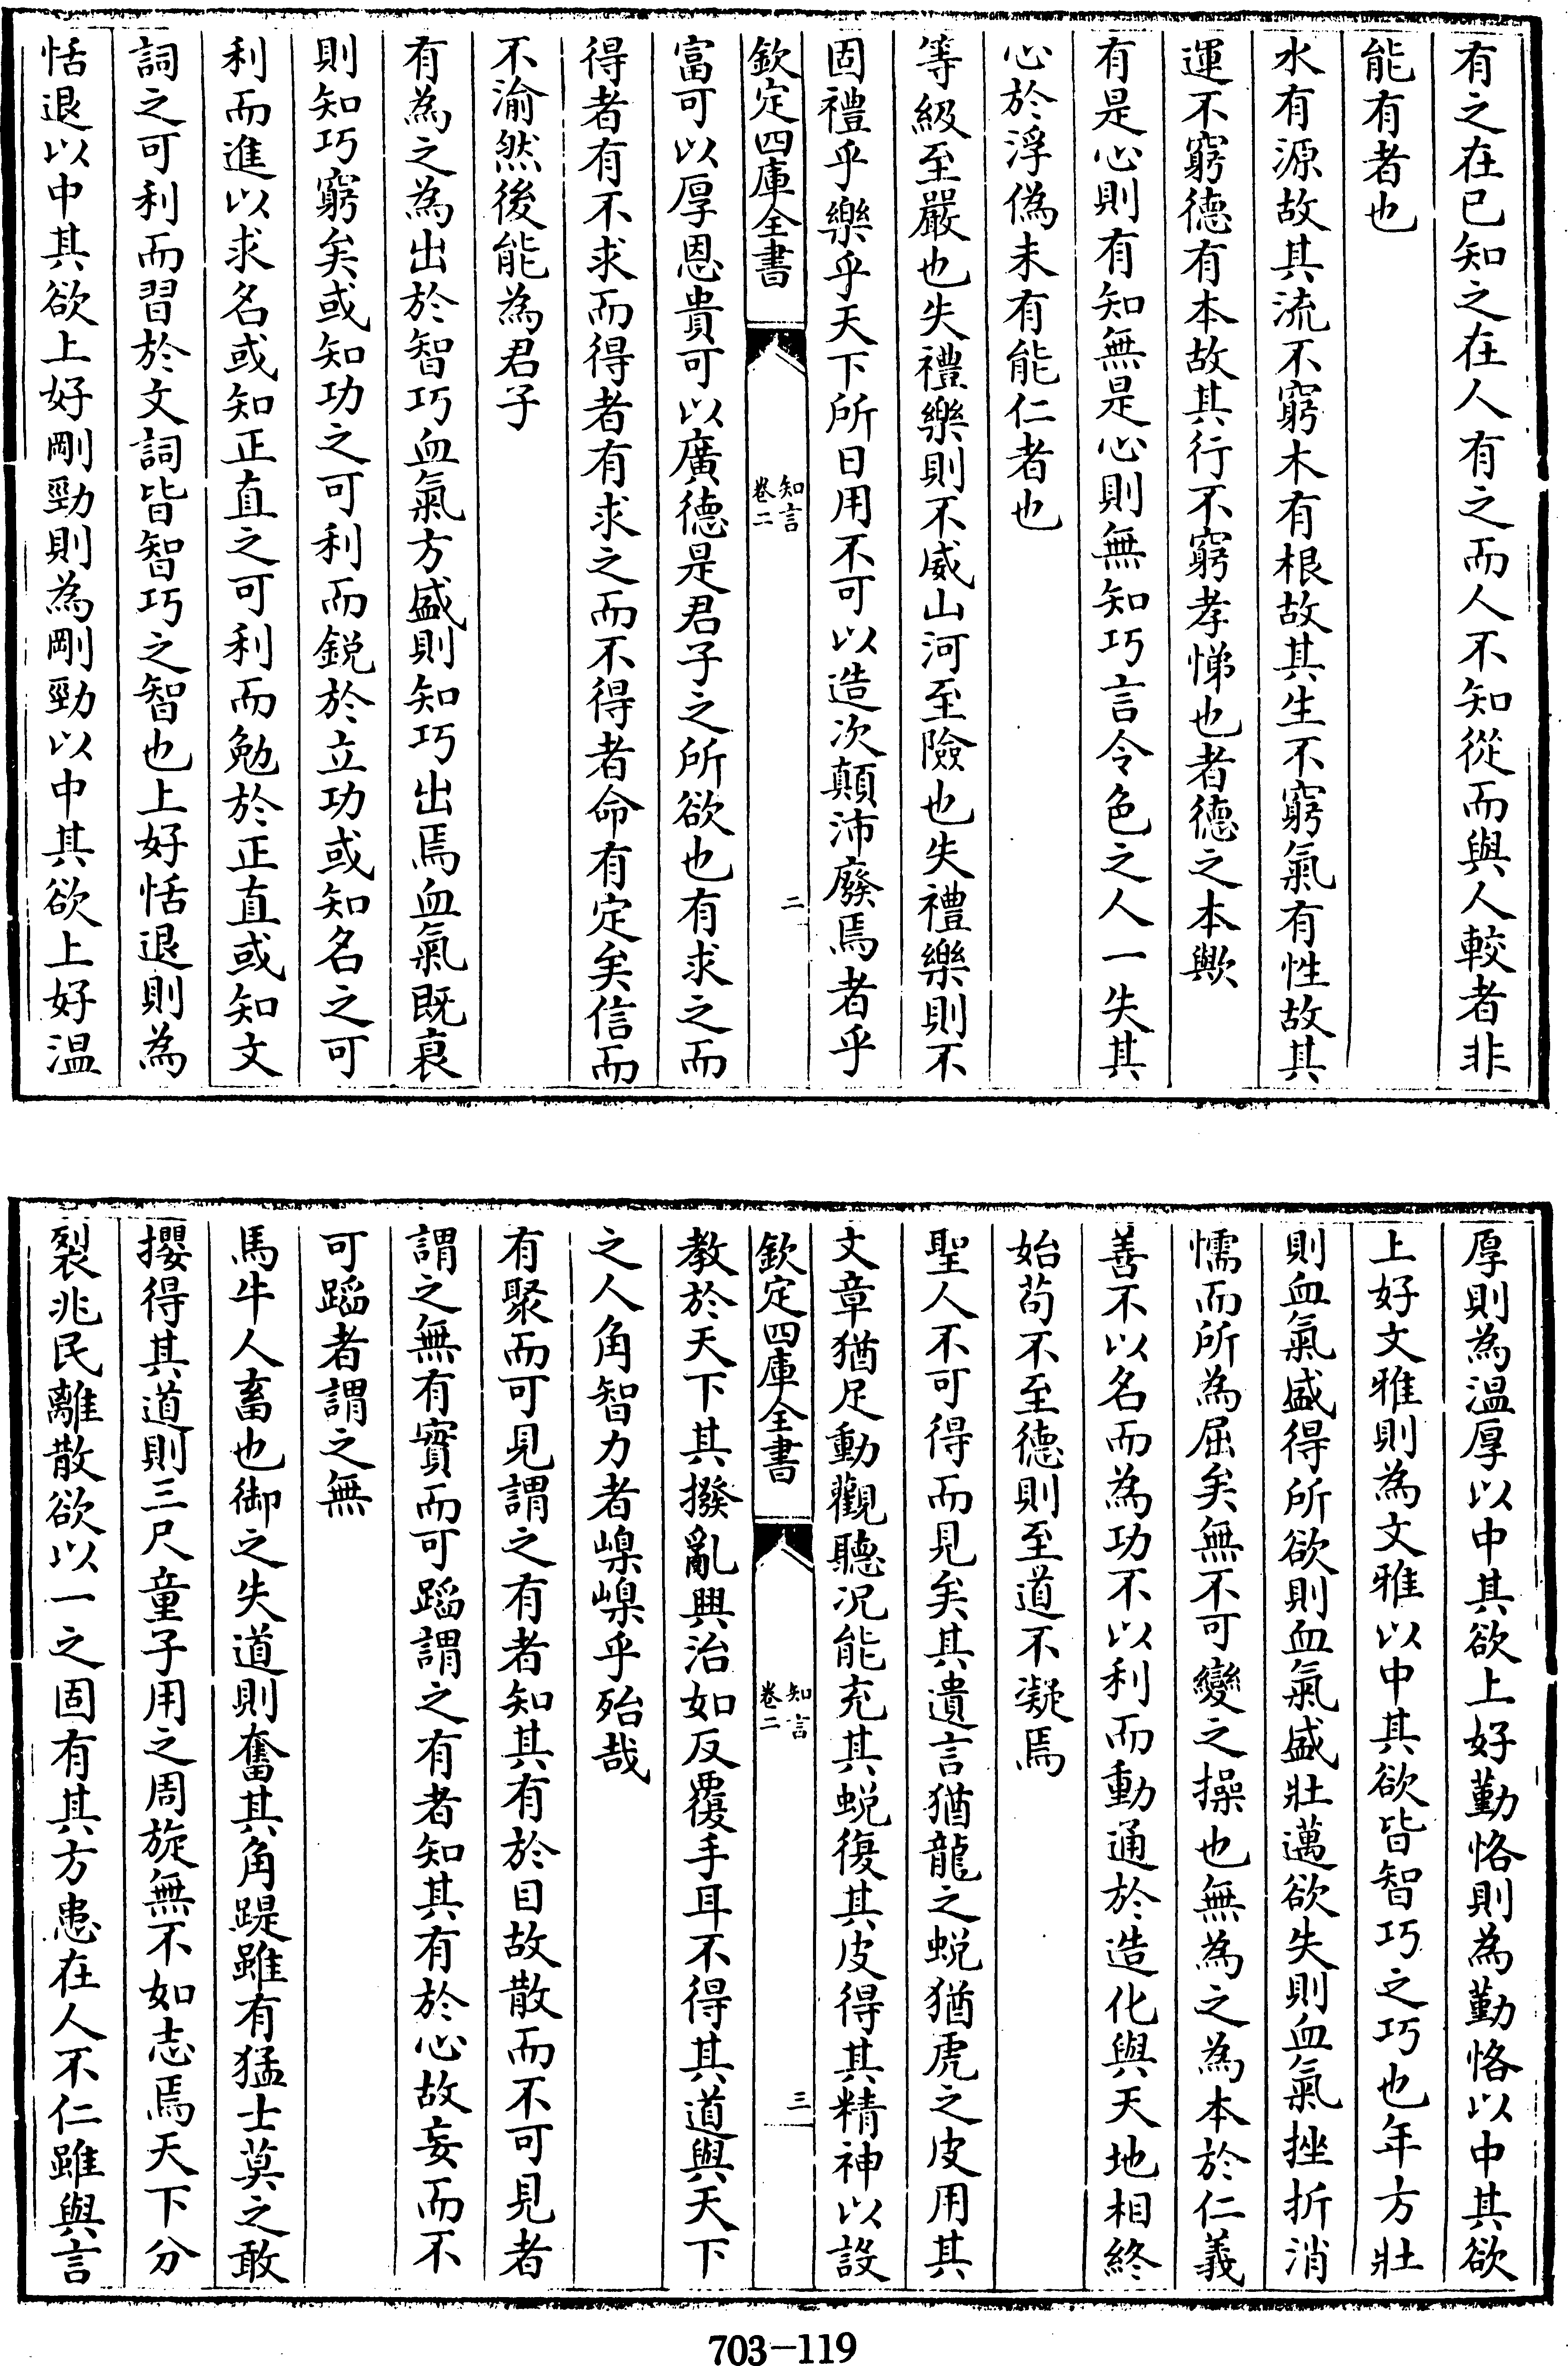 有之在已知之在人有之而人不知從而與人較者非
能有者也
水有源故其流不窮木有根故其生不窮氣有性故其
運不窮德有本故其行不窮孝悌也者德之本歟
有是心則有知無是心則無知巧言令色之人一失其
心於浮偽未有能仁者也
等級至嚴也失禮樂則不威山河至險也失禮樂則不
固禮乎樂乎天下所日用不可以造次顛沛廢焉者乎
欽定四庫全書
知言
卷二
二
富可以厚恩貴可以廣德是君子之所欲也有求之而
得者有不求而得者有求之而不得者命有定矣信而
不渝然後能為君子
有為之為出於智巧血氣方盛則知巧出焉血氣既衰
則知巧窮矣或知功之可利而鋭於立功或知名之可
利而進以求名或知正直之可利而勉於正直或知文
詞之可利而習於文詞皆智巧之智也上好恬退則為
恬退以中其欲上好剛勁則為剛勁以中其欲上好温
厚則為温厚以中其欲上好勤恪則為勤恪以中其欲
上好文雅則為文雅以中其欲皆智巧之巧也年方壯
則血氣盛得所欲則血氣盛壯邁欲失則血氣挫折消
懦而所為屈矣無不可變之操也無為之為本於仁義
善不以名而為功不以利而動通於造化與天地相終
始苟不至德則至道不凝焉
聖人不可得而見矣其遺言猶龍之蜕猶虎之皮用其
文章猶足動觀聽况能充其蜕復其皮得其精神以設
欽定四庫全書
知言
卷二
三
教於天下其撥亂興治如反覆手耳不得其道與天下
之人角智力者嵲嵲乎殆哉
有聚而可見謂之有者知其有於目故散而不可見者
謂之無有實而可蹈謂之有者知其有於心故妄而不
可蹈者謂之無
馬牛人畜也御之失道則奮其角踶雖有猛士莫之敢
攖得其道則三尺童子用之周旋無不如志焉天下分
裂兆民離散欲以一之固有其方患在人不仁雖與言
703-119